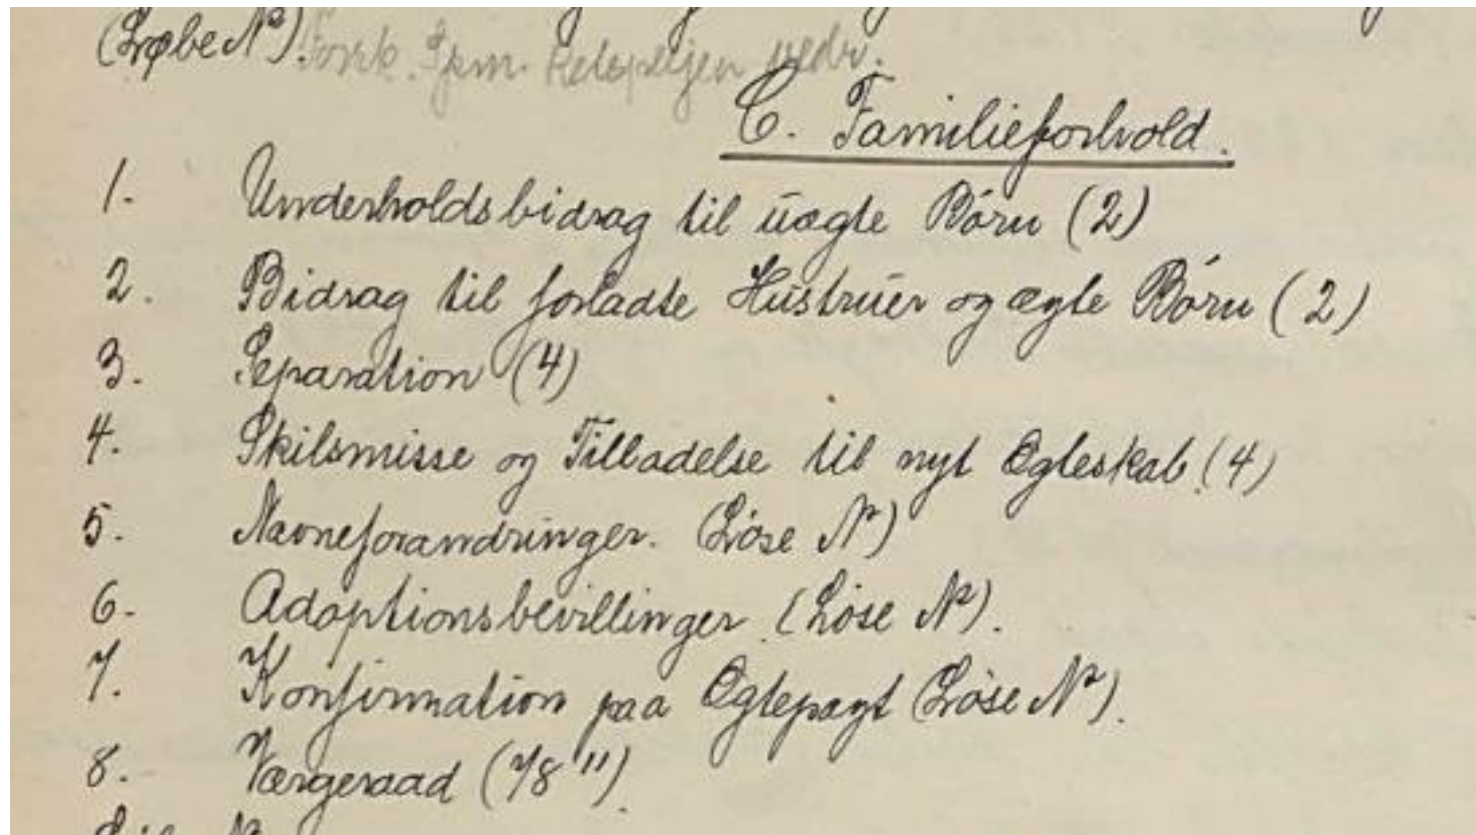 (Løbe №). Forsk. Spm. Retsplejen vedr.
C. Familieforhold.
1. Underholdsbidrag til uægte Børn (2)
2. Bidrag til forladte Hustruer og ægte Børn (2)
3. Separation (4)
4. Skilsmisse og Tilladelse til nyt Ægteskab (4)
5. Navneforandringer. (Løse №)
6. Adoptionsbevillinger. (Løse №).
7. Konfirmation paa Ægtepagt (Løse №).
8. Værgeraad (7/8 11).